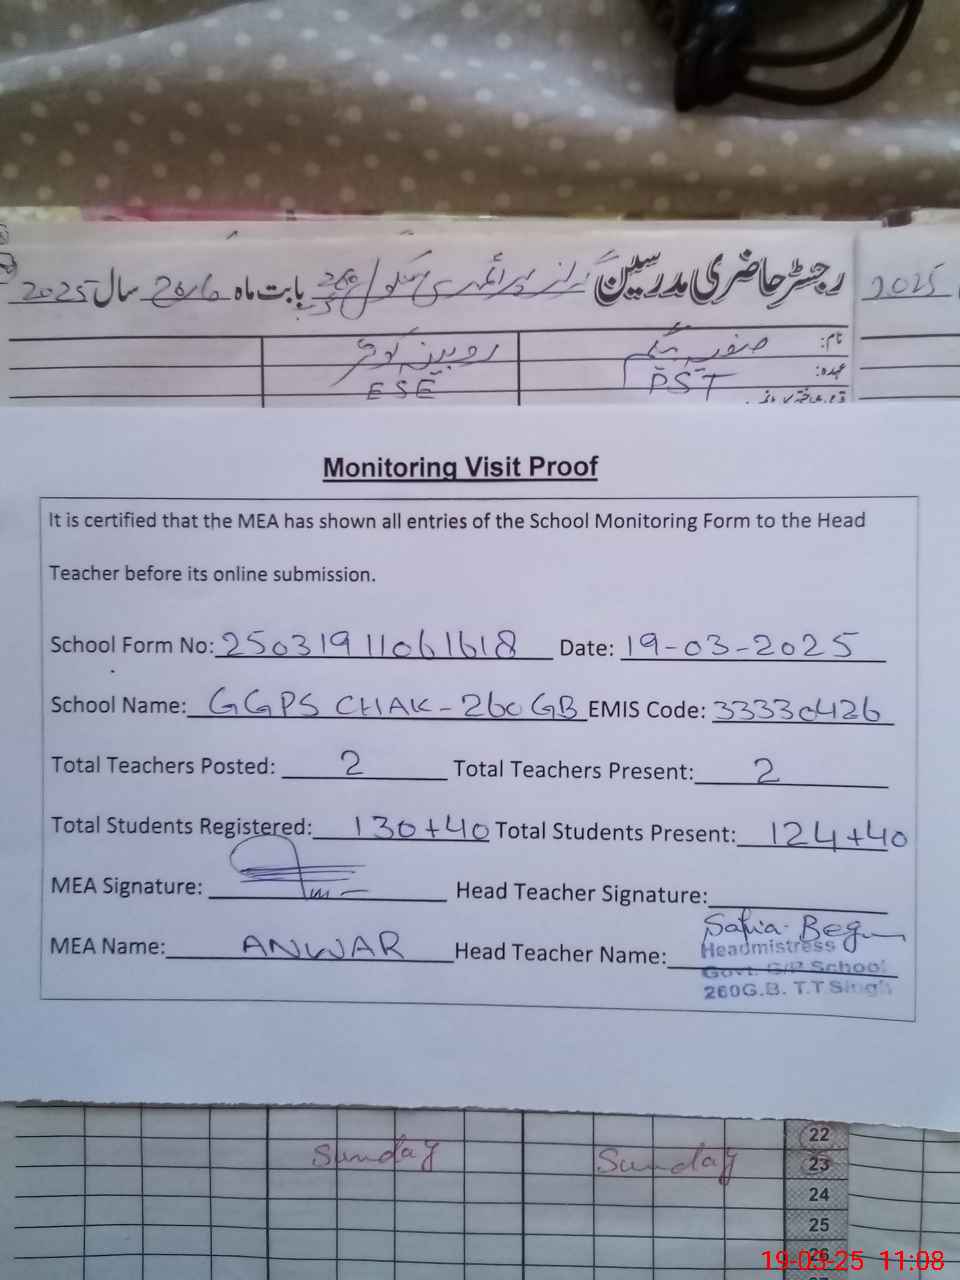 رجسٹر حاضری مدرسین گرلز پرائمری سکول 260 بابت ماہ سال 2025
2025
نام: صفیہ بیگم روبینہ کوثر
عہدہ: PST ESE
Monitoring Visit Proof
It is certified that the MEA has shown all entries of the School Monitoring Form to the Head
Teacher before its online submission.
School Form No: 25031911061618 Date: 19-03-2025
School Name: GGPS CHAK-260 GB EMIS Code: 33330426
Total Teachers Posted: 2 Total Teachers Present: 2
Total Students Registered: 130+40 Total Students Present: 124+40
MEA Signature: Head Teacher Signature:
MEA Name: ANWAR Head Teacher Name: Safia Begum
Headmistress
Govt. G/P School
260G.B. T.T Singh
22
Sunday Sunday 23
24
25
26
19-03-25 11:08